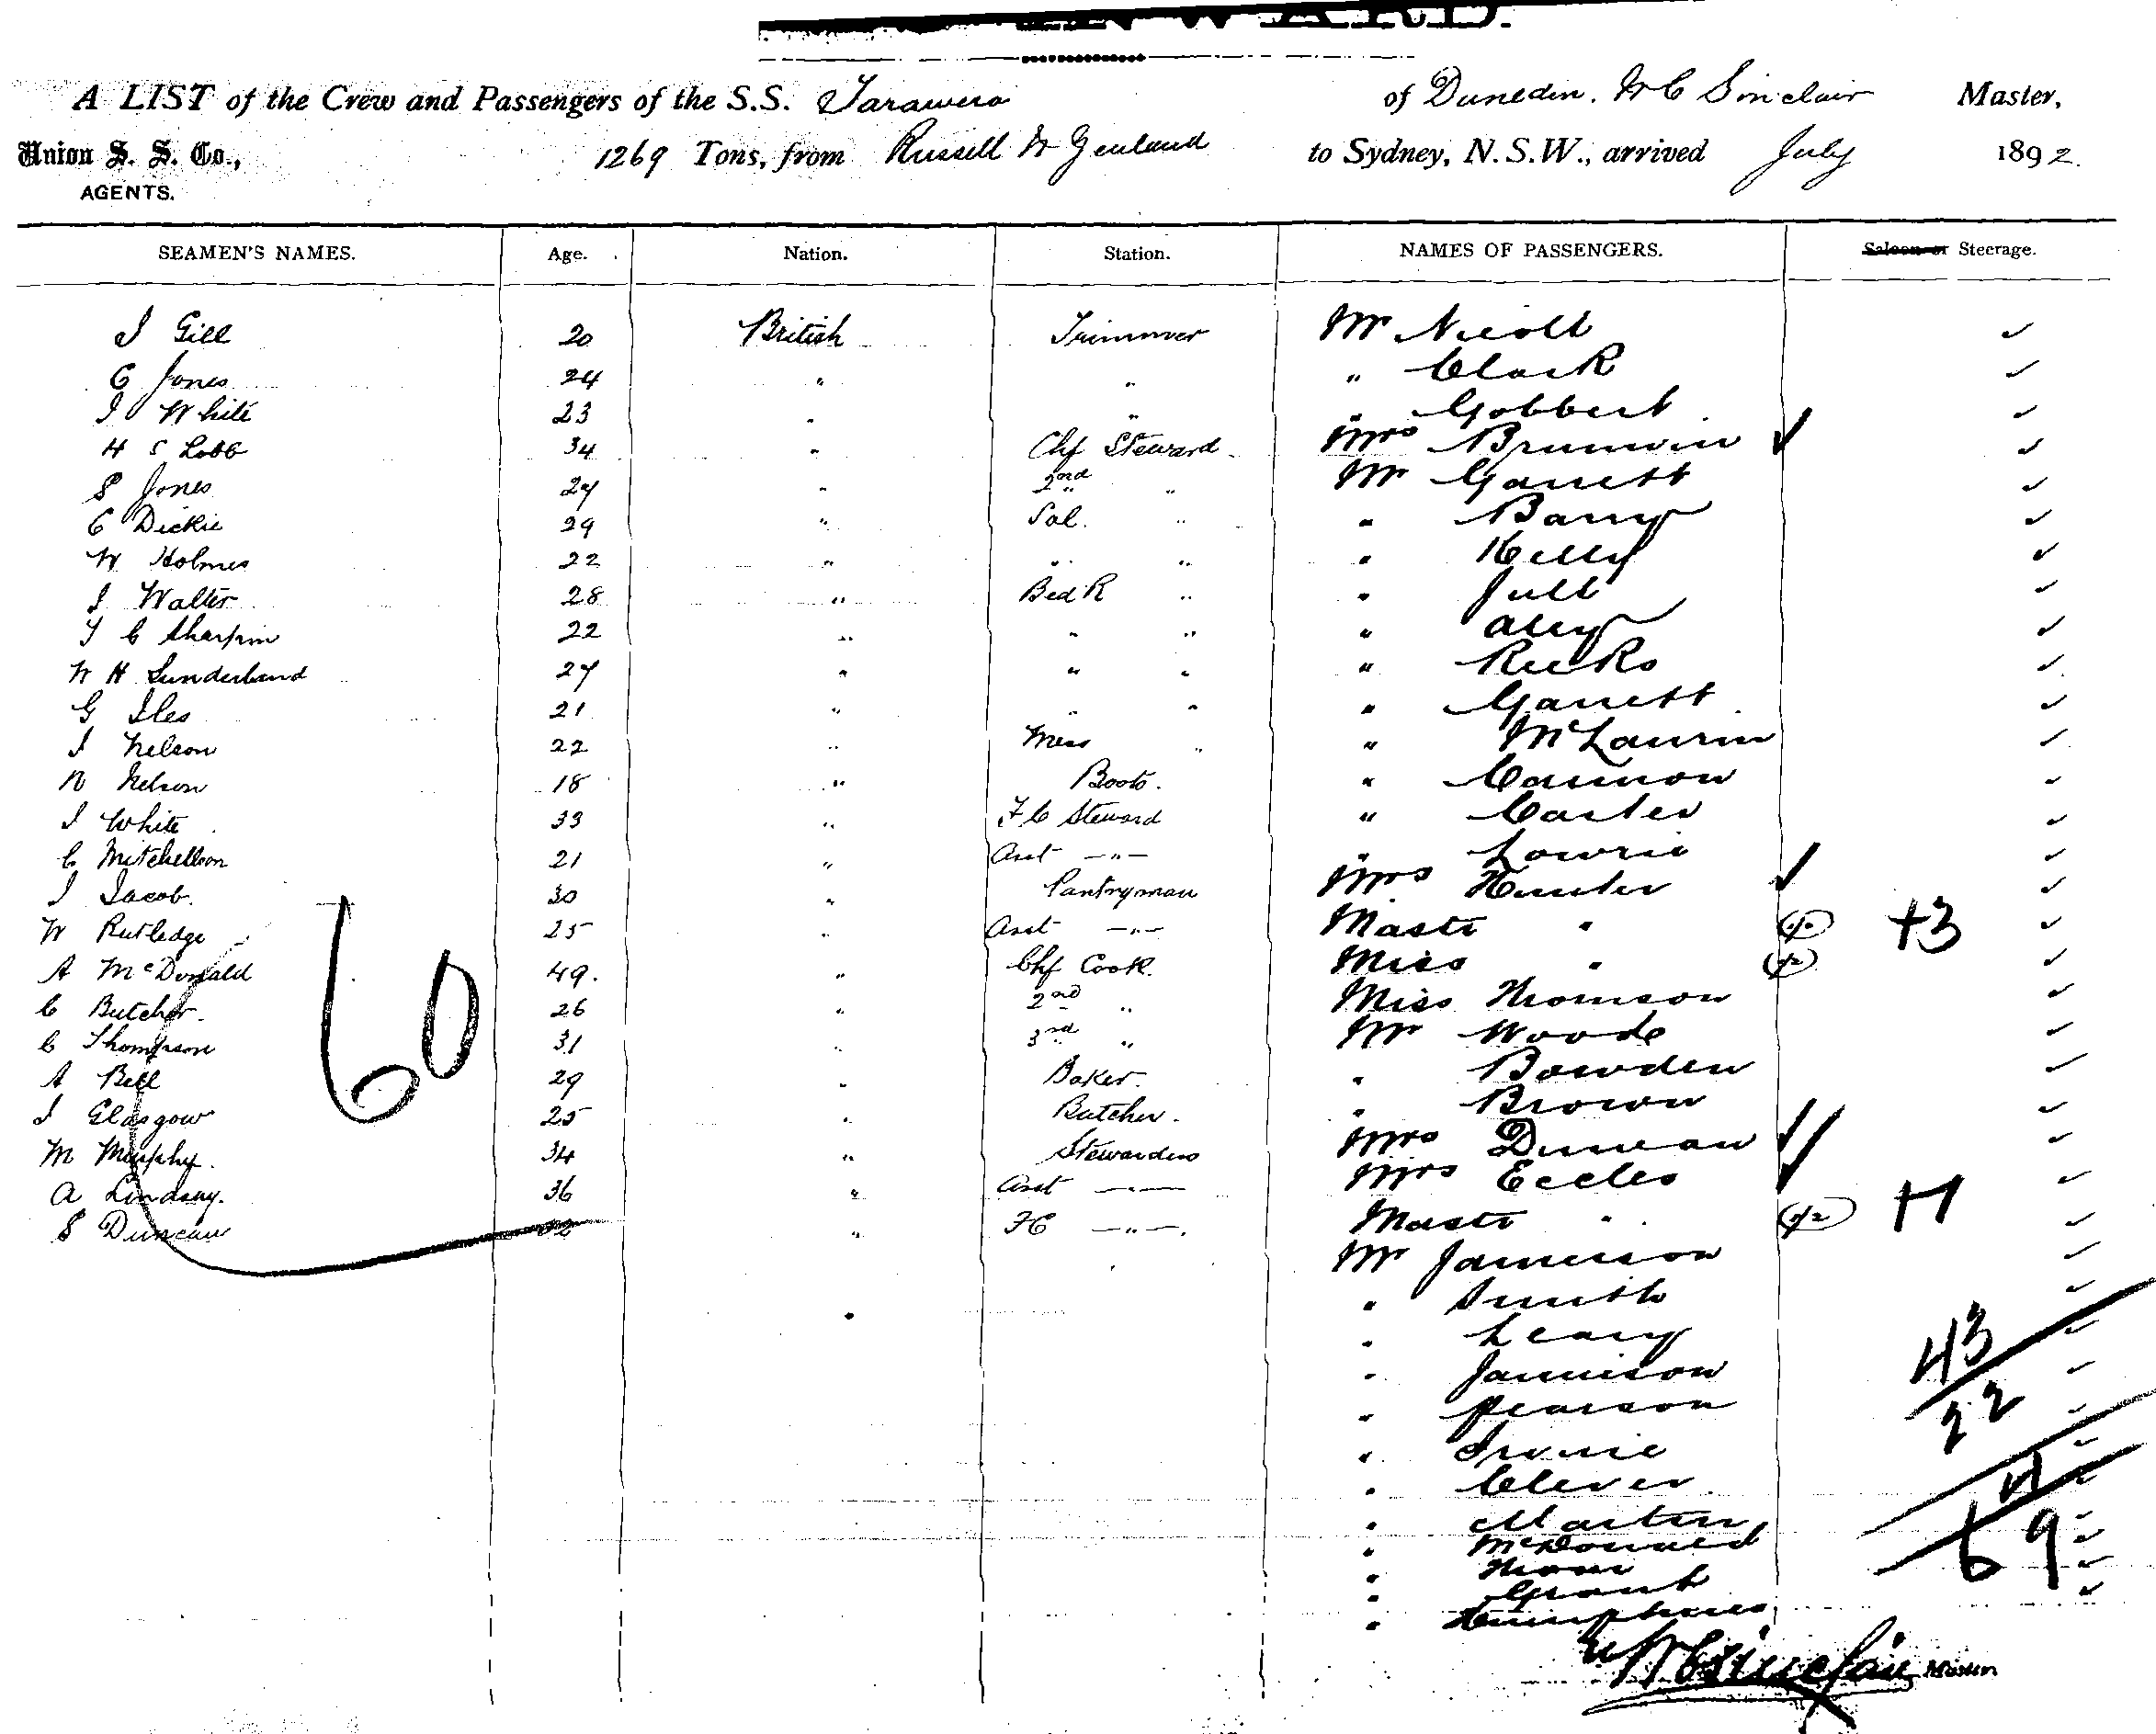 A LIST of the Crew and Passengers of the S.S. Tarawera of Dunedin. W C Sinclair Master,
Union S. S. Co., 1269 Tons, from Russell N Zealand to Sydney, N.S.W., arrived July 1892.
AGENTS.
SEAMEN'S NAMES. Age. Nation. Station. NAMES OF PASSENGERS. Saloon or Steerage.
J Gill 20 British Trimmer Mr Nicoll ✓
C Jones 24 " " " Clark ✓
J White 23 " " " Gobbert ✓
H S Lobb 34 " Chf Steward Mrs Brunwin ✓ ✓
S Jones 27 " 2nd " Mr Garrett ✓
C Dickie 29 " Sal. " " Barry ✓
W Holmes 22 " " " " Kelly ✓
J Walter 28 " Bed R " " Jull ✓
T C Sharpin 22 " " " " Ally ✓
W H Sunderland 27 " " " " Ricks ✓
G Iles 21 " " " " Garrett ✓
J Nelson 22 " Mess " " McLaurin ✓
N Nelson 18 " Boots. " Cannon ✓
J White 33 " F C Steward " Carter ✓
C Mitchellson 21 " Asst — " — " Lowrie ✓
J Jacob. 30 " Pantryman Mrs Hunter ✓ ✓
W Rutledge 25 " Asst — " — Mastr " +3 ✓
A McDonald 49. " Chf Cook. Miss " (1/2) ✓
C Butcher. 26 " 2nd " Miss Thomson ✓
C Thompson 31 " 3rd " Mr Woods ✓
A Bell 29 " Baker. " Bowden ✓
J Glasgow 25 " Butcher. " Brown ✓
M Murphy. 34 " Stewardess Mrs Duncan ✓ ✓
A Lindsay. 36 " Asst — " — Mrs Eccles ✓ ✓
S Duncan " FC — " —. Mastr " (1/2) +1 ✓
60
Mr Jamieson ✓
" Smith ✓
" Leary ✓
" Jamieson ✓
" Pearson ✓
" Irvine ✓
" Clever ✓
" Martin ✓
" McDonald ✓
" ✓
" Grant ✓
" Humphries
43
22
69
W C Sinclair Master